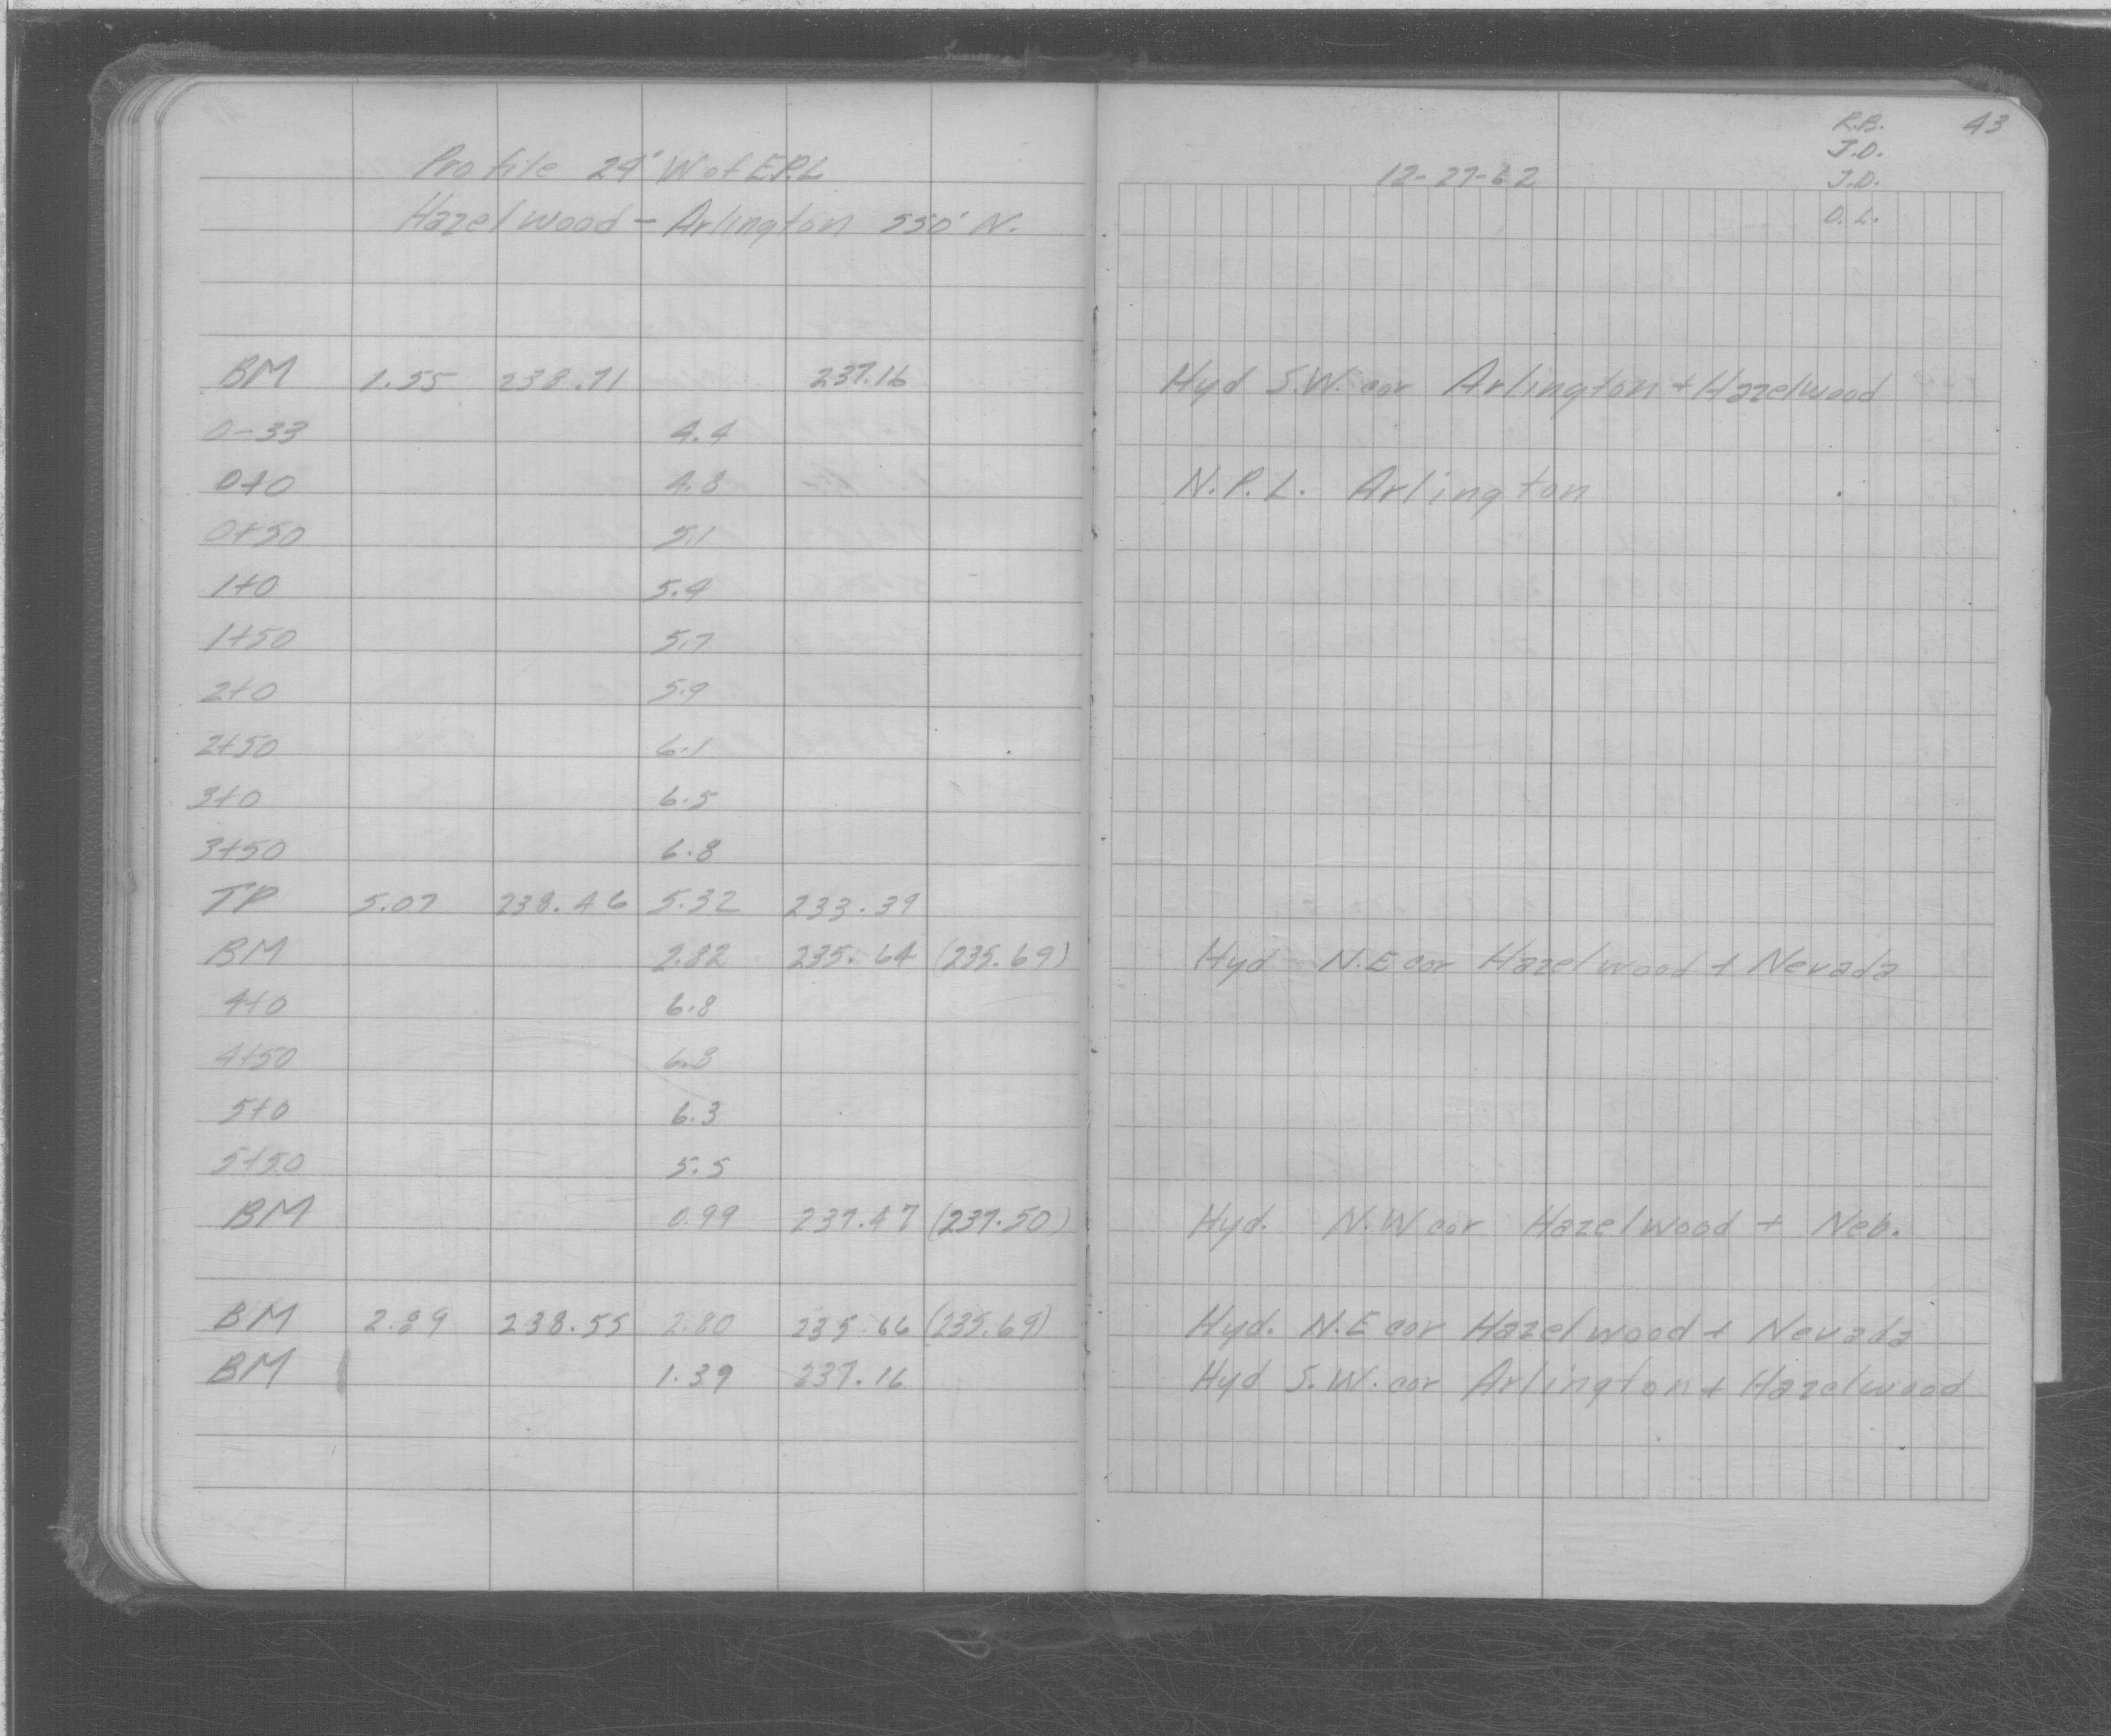 R.B. 43
J.D.
Profile 24' W of E.P.L 12-27-62 J.D.
Hazelwood - Arlington 550' N. O.L.
BM 1.55 238.71 237.16 Hyd S.W. cor Arlington + Hazelwood
0-33 4.4
0+0 4.8 N.P.L. Arlington
0+50 5.1
1+0 5.4
1+50 5.7
2+0 5.9
2+50 6.1
3+0 6.5
3+50 6.8
TP 5.07 238.46 5.32 233.39
BM 2.82 235.64 (235.69) Hyd N.E cor Hazelwood + Nevada
4+0 6.8
4+50 6.8
5+0 6.3
5+50 5.5
BM 0.99 237.47 (237.50) Hyd. N.W cor Hazelwood + Neb.
BM 2.89 238.55 2.80 235.66 (235.69) Hyd. N.E cor Hazelwood + Nevada
BM 1.39 237.16 Hyd S.W. cor Arlington + Hazelwood